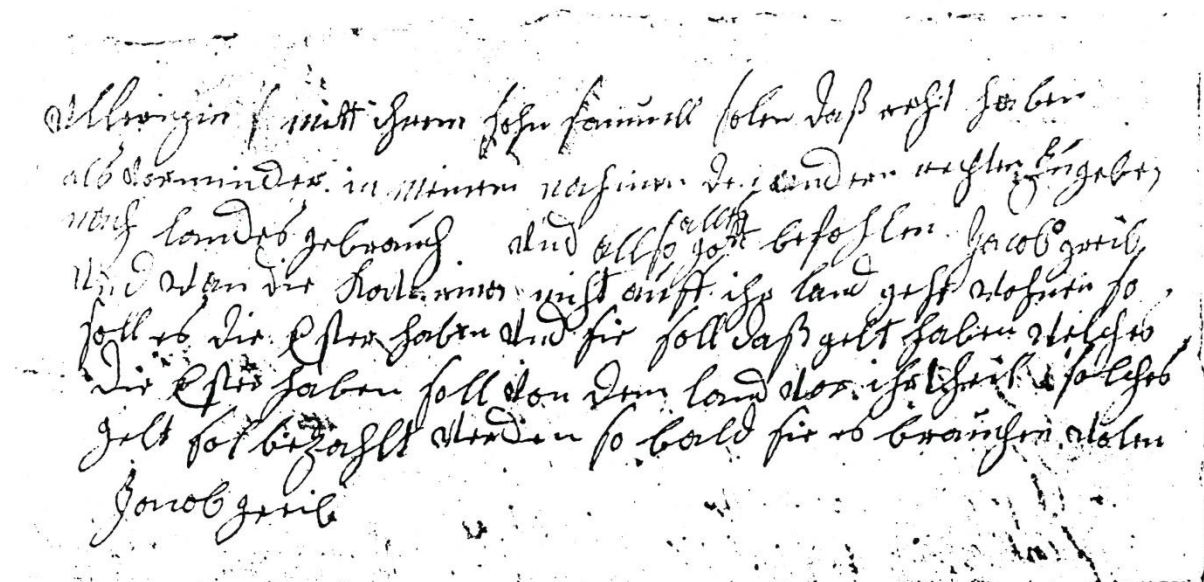 mitt ihrem sohn samuell solen daß recht haben
als vorminder in meinem nahmen den andern rechten zu geben
nach landes gebrauch und allso allen gott befohlen Jacob greib
und wan die nicht auff ihr land geht wohnen so
soll es die Ester haben und sie soll daß gelt haben welches
die Ester haben soll von dem land vor ihr theil solches
gelt sol bezahlt werden so bald sie es brauchen wolen
Jacob greib